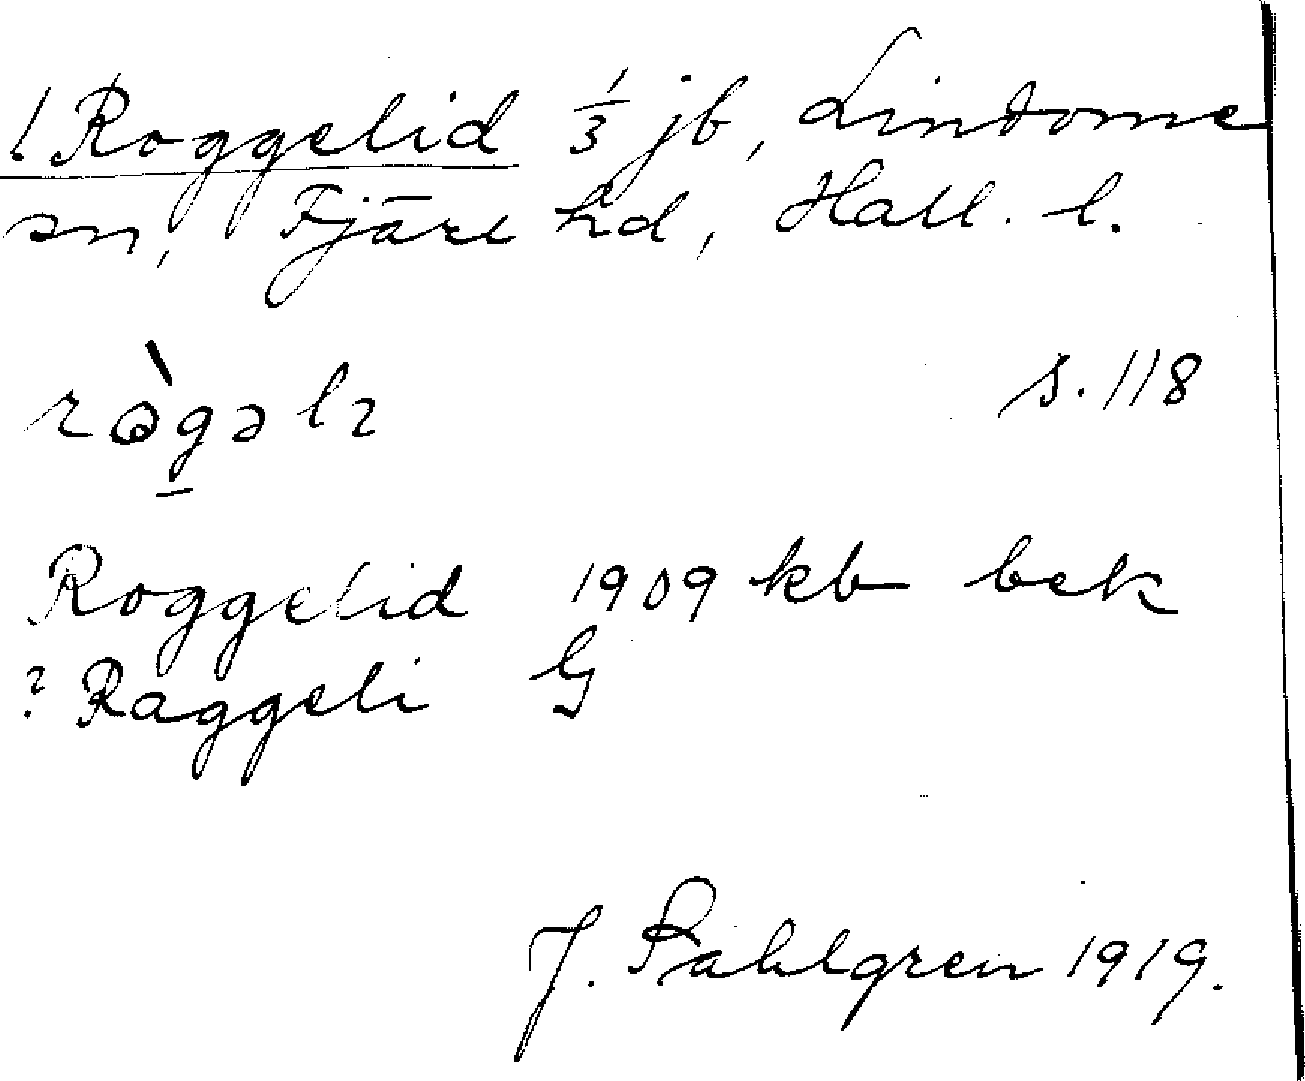 l Roggelid 1/3 jb, Lindome
sn, Fjäre hd, Hall. l.
s. 118
Roggelid 1909 kb bek
? Raggeli G
J. Sahlgren 1919.